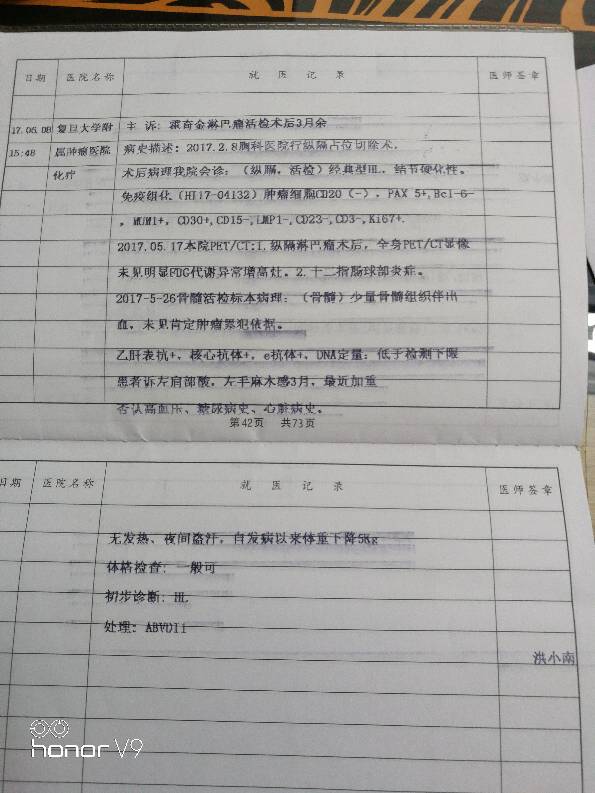 日期 医院名称 就 医 记 录 医师签章
17.06.08 复旦大学附 主 诉: 霍奇金淋巴瘤活检术后3月余
15:48 属肿瘤医院 病史描述: 2017.2.8胸科医院行纵隔占位切除术,
化疗 术后病理我院会诊: (纵膈,活检) 经典型HL, 结节硬化性。
免疫组化 (HI17-04132) 肿瘤细胞CD20 (-) , PAX 5+,Bcl-6-
, MUM1+, CD30+,CD15-,LMP1-,CD23-,CD3-,Ki67+.
2017.05.17本院PET/CT:1.纵隔淋巴瘤术后, 全身PET/CT显像
未见明显FDG代谢异常增高灶。2.十二指肠球部炎症。
2017-5-26骨髓活检标本病理: (骨髓) 少量骨髓组织伴出
血, 未见肯定肿瘤累犯依据。
乙肝表抗+, 核心抗体+, e抗体+, DNA定量: 低于检测下限
患者诉左肩部酸, 左手麻木感3月, 最近加重
否认高血压、糖尿病史、心脏病史。
第42页 共73页
日期 医院名称 就 医 记 录 医师签章
无发热、夜间盗汗, 自发病以来体重下降5Kg
体格检查: 一般可
初步诊断: HL
处理: ABVD11
洪小南
honor V9